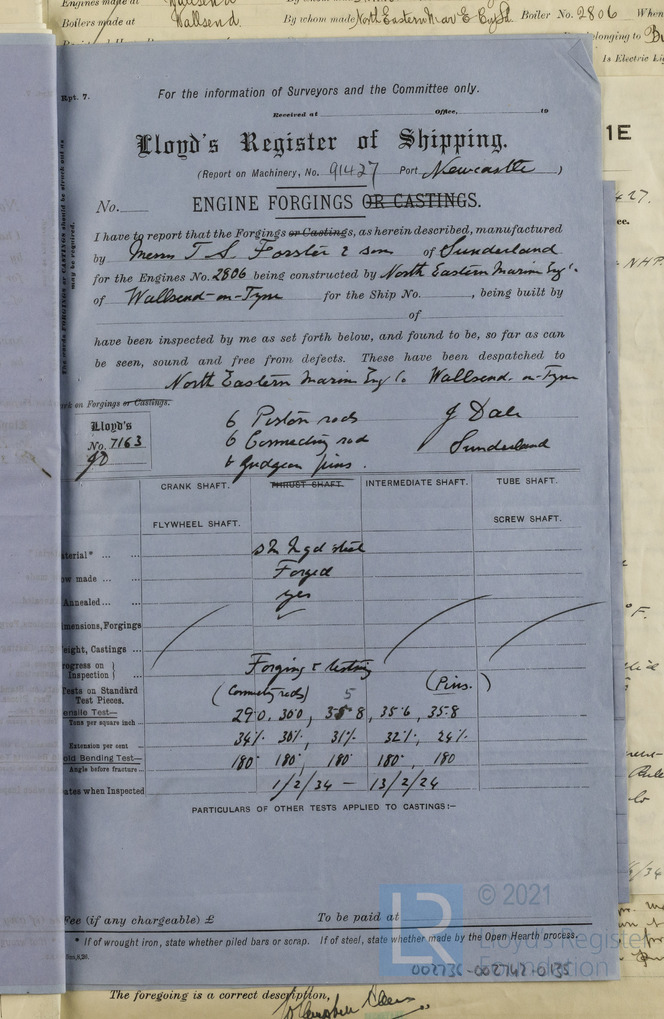 Engines made at Wallsend
Boilers made at Wallsend. By whom made North Eastern Mar E Boiler No. 2806 When
belonging to
Is Electric Li
Rpt. 7.
For the information of Surveyors and the Committee only.
Received at Office, 19
Lloyd's Register of Shipping.
(Report on Machinery, No. 91427 Port Newcastle )
No. ENGINE FORGINGS OR CASTINGS.
The words FORGINGS or CASTINGS should be struck out as may be required.
I have to report that the Forgings or Castings, as herein described, manufactured
by Messrs T. S. Forster & Son of Sunderland
for the Engines No. 2806 being constructed by North Eastern Marine Eng'
of Wallsend-on-Tyne for the Ship No. , being built by
of
have been inspected by me as set forth below, and found to be, so far as can
be seen, sound and free from defects. These have been despatched to
North Eastern Marine Eng Co Wallsend. on-Tyne
rk on Forgings or Castings.
Lloyd's
No. 7163
JD
6 Piston rods
6 Connecting rod
6 Gudgeon pins.
J Dale
Sunderland
CRANK SHAFT. THRUST SHAFT. INTERMEDIATE SHAFT. TUBE SHAFT.
FLYWHEEL SHAFT. SCREW SHAFT.
terial* ... ... steel
ow made ... ... Forged
Annealed ... ... yes
mensions, Forgings
eight, Castings ...
rogress on Inspection } Forging & testing
Tests on Standard Test Pieces. (Connectg rods) 5 (Pins.)
ensile Test— Tons per square inch ... 29.0, 30.0, 35.8, 35.6, 35.8
Extension per cent ... 34%, 30%, 31%, 32%, 24%
old Bending Test— Angle before fracture ... 180°, 180°, 180°, 180°, 180
ates when Inspected 1/2/34 — 13/2/24
PARTICULARS OF OTHER TESTS APPLIED TO CASTINGS:—
Fee (if any chargeable) £ To be paid at
* If of wrought iron, state whether piled bars or scrap. If of steel, state whether made by the Open Hearth process.
© 2021
LR Lloyd's Register Foundation
002736-002742-0135
The foregoing is a correct description,